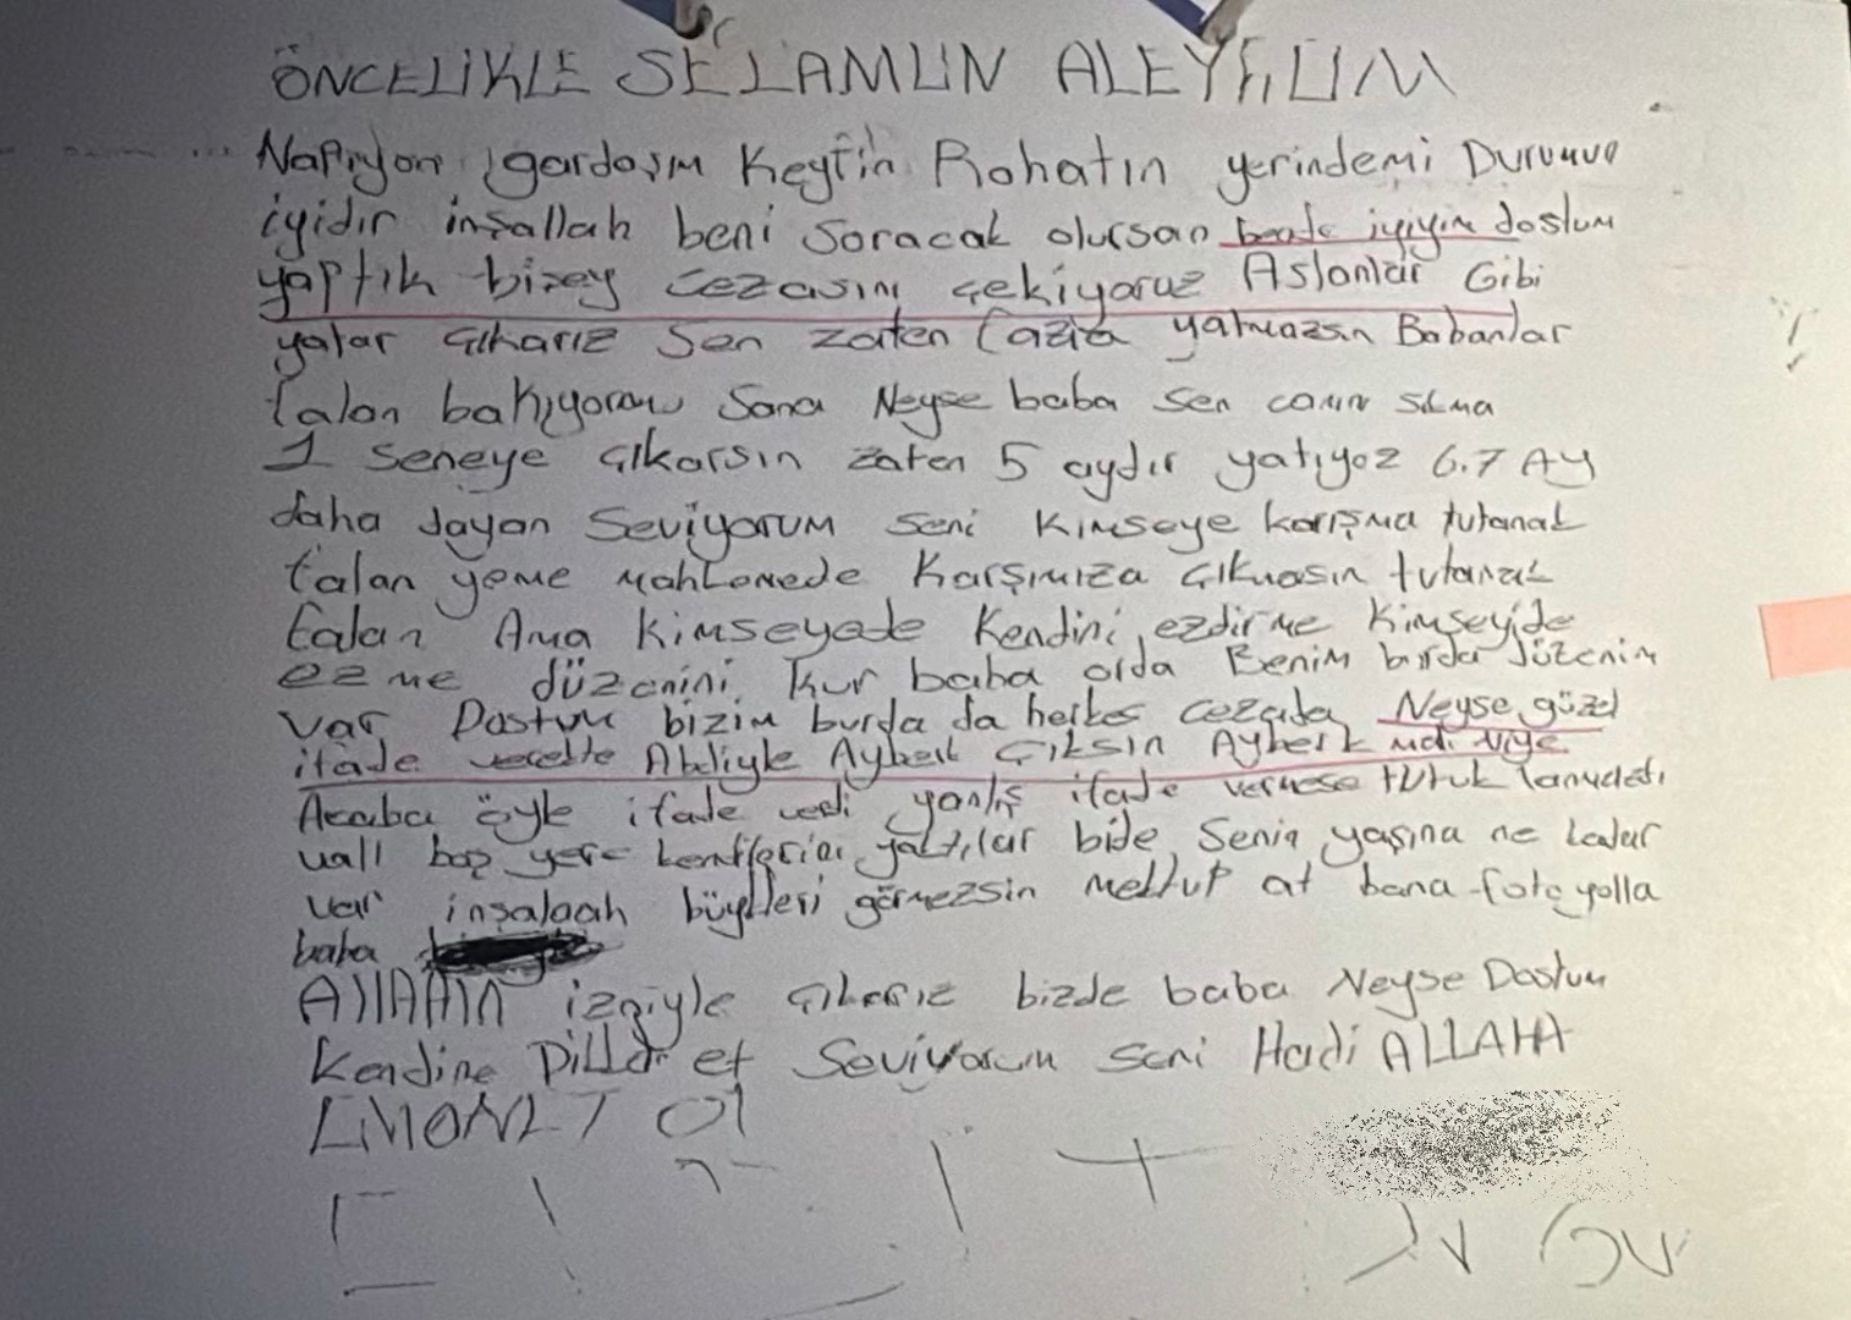 ÖNCELİKLE SELAMUN ALEYKUM
Napıyon gardaşım Keyfin Rohatın yerindemi Durumun
iyidir inşallah beni Soracak olursan bende iyiyim dostum
yaptık bizey cezasını çekiyoruz Aslanlar Gibi
yatar çıkarız Sen zaten fazla yatmazsın Babanlar
falan bakıyorum Sana Neyse baba Sen canın sıkma
1 Seneye çıkarsın zaten 5 aydır yatıyoz 6.7 AY
daha dayan Seviyorum seni Kimseye karışma tutanak
falan yeme Mahkemede Karşımıza çıkmasın tutanak
falan Ama Kimseyede Kendini ezdirme Kimseyide
ezme düzenini Kur baba orda Benim burda düzenim
var Dostum bizim burda da herkes cezada Neyse güzel
ifade Abdiyle Ayberk Çıksın Ayberk niye
Acaba öyle ifade verdi yanlış ifade vermese tutuk lanmazdı
vall boş yere yattılar bide Senin yaşına ne kadar
var inşalaah görmezsin Mektup at bana foto yolla
baba
AllAHIN izniyle çıkarız bizde baba Neyse Dostum
Kendine Dikkat et Seviyorum seni Hadi ALLAHA
EMONET Ol